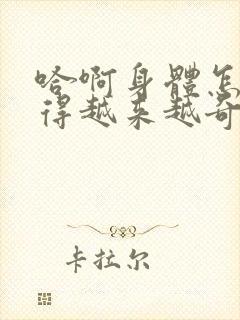 哈~啊身體怎
得越来越奇
卡拉尔